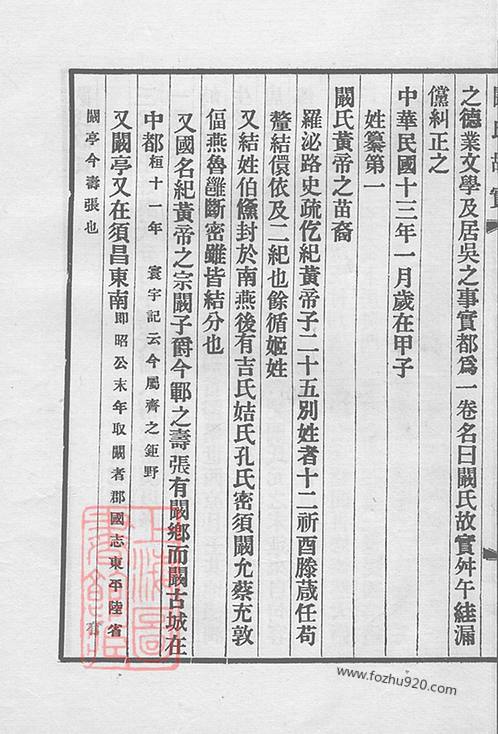 之德業文學及居吳之事實都爲一卷名曰闞氏故實舛午絓漏
儻糾正之
中華民國十三年一月歲在甲子
姓纂第一
闞氏黃帝之苗裔
羅泌路史疏仡紀黃帝子二十五別姓者十二祈酉滕葴任苟
釐結儇依及二紀也餘循姬姓
又結姓伯儵封於南燕後有吉氏姞氏孔氏密須闞允蔡充敦
偪燕魯雝斷密雖皆結分也
又國名紀黃帝之宗闞子爵今鄆之壽張有闞鄉而闞古城在
中都桓十一年 寰宇記云今屬齊之鉅野
又闞亭又在須昌東南即昭公末年取闞者郡國志東平陸省
闞亭今壽張也
www.fozhu920.com